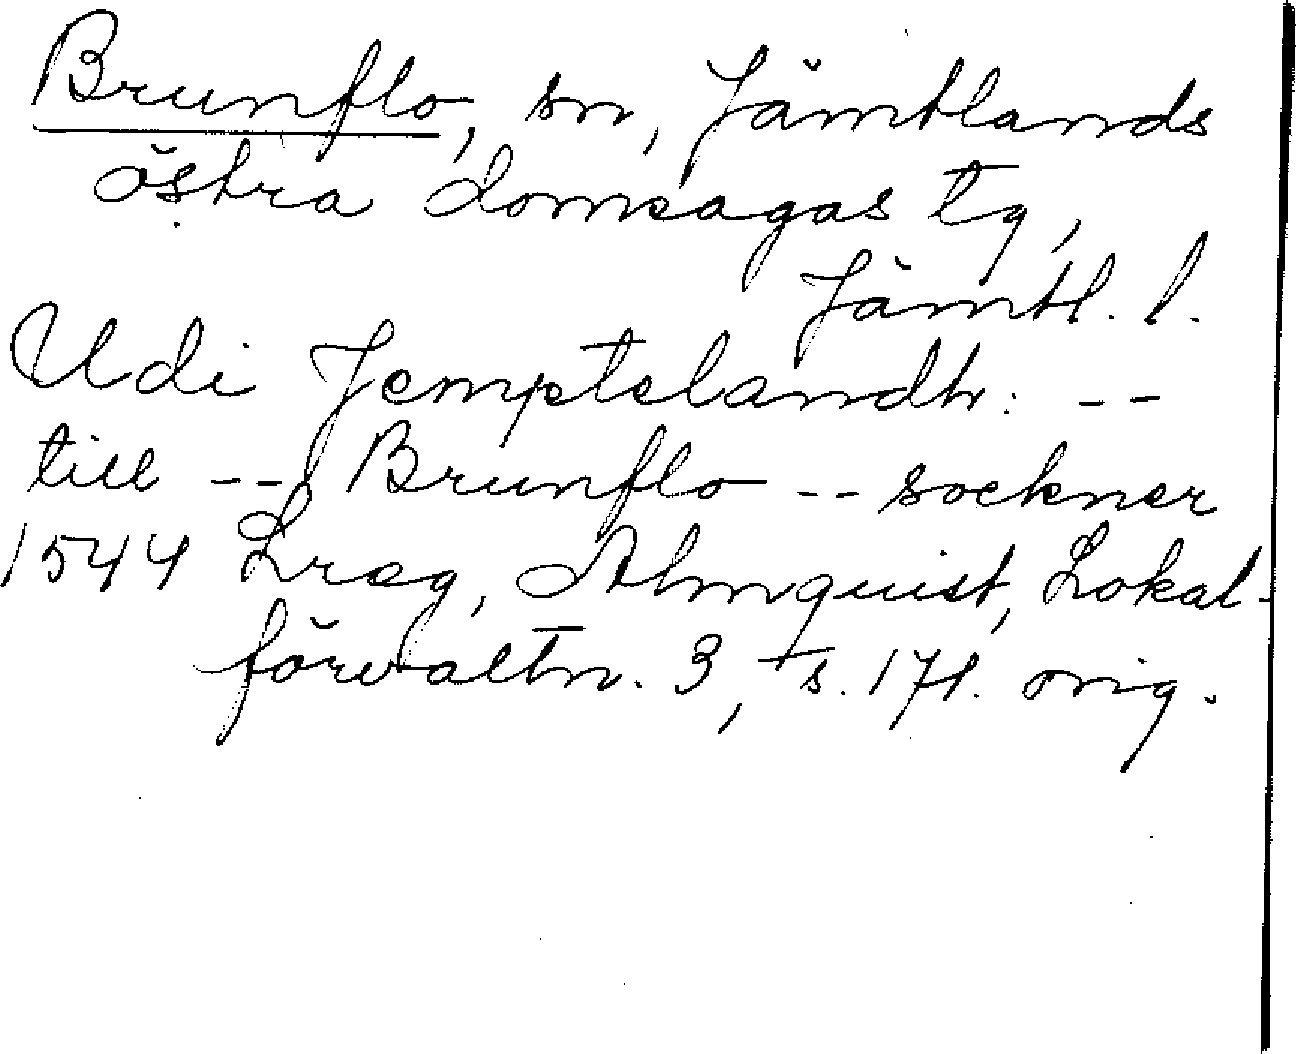 Brunflo, sn, Jämtlands
östra domsagas tg,
Jämtl. l.
Udi Jemptelandh: --
till -- Brunflo -- sockner
1544 Lreg, Almquist, Lokal-
förvaltn. 3, s. 171. orig.